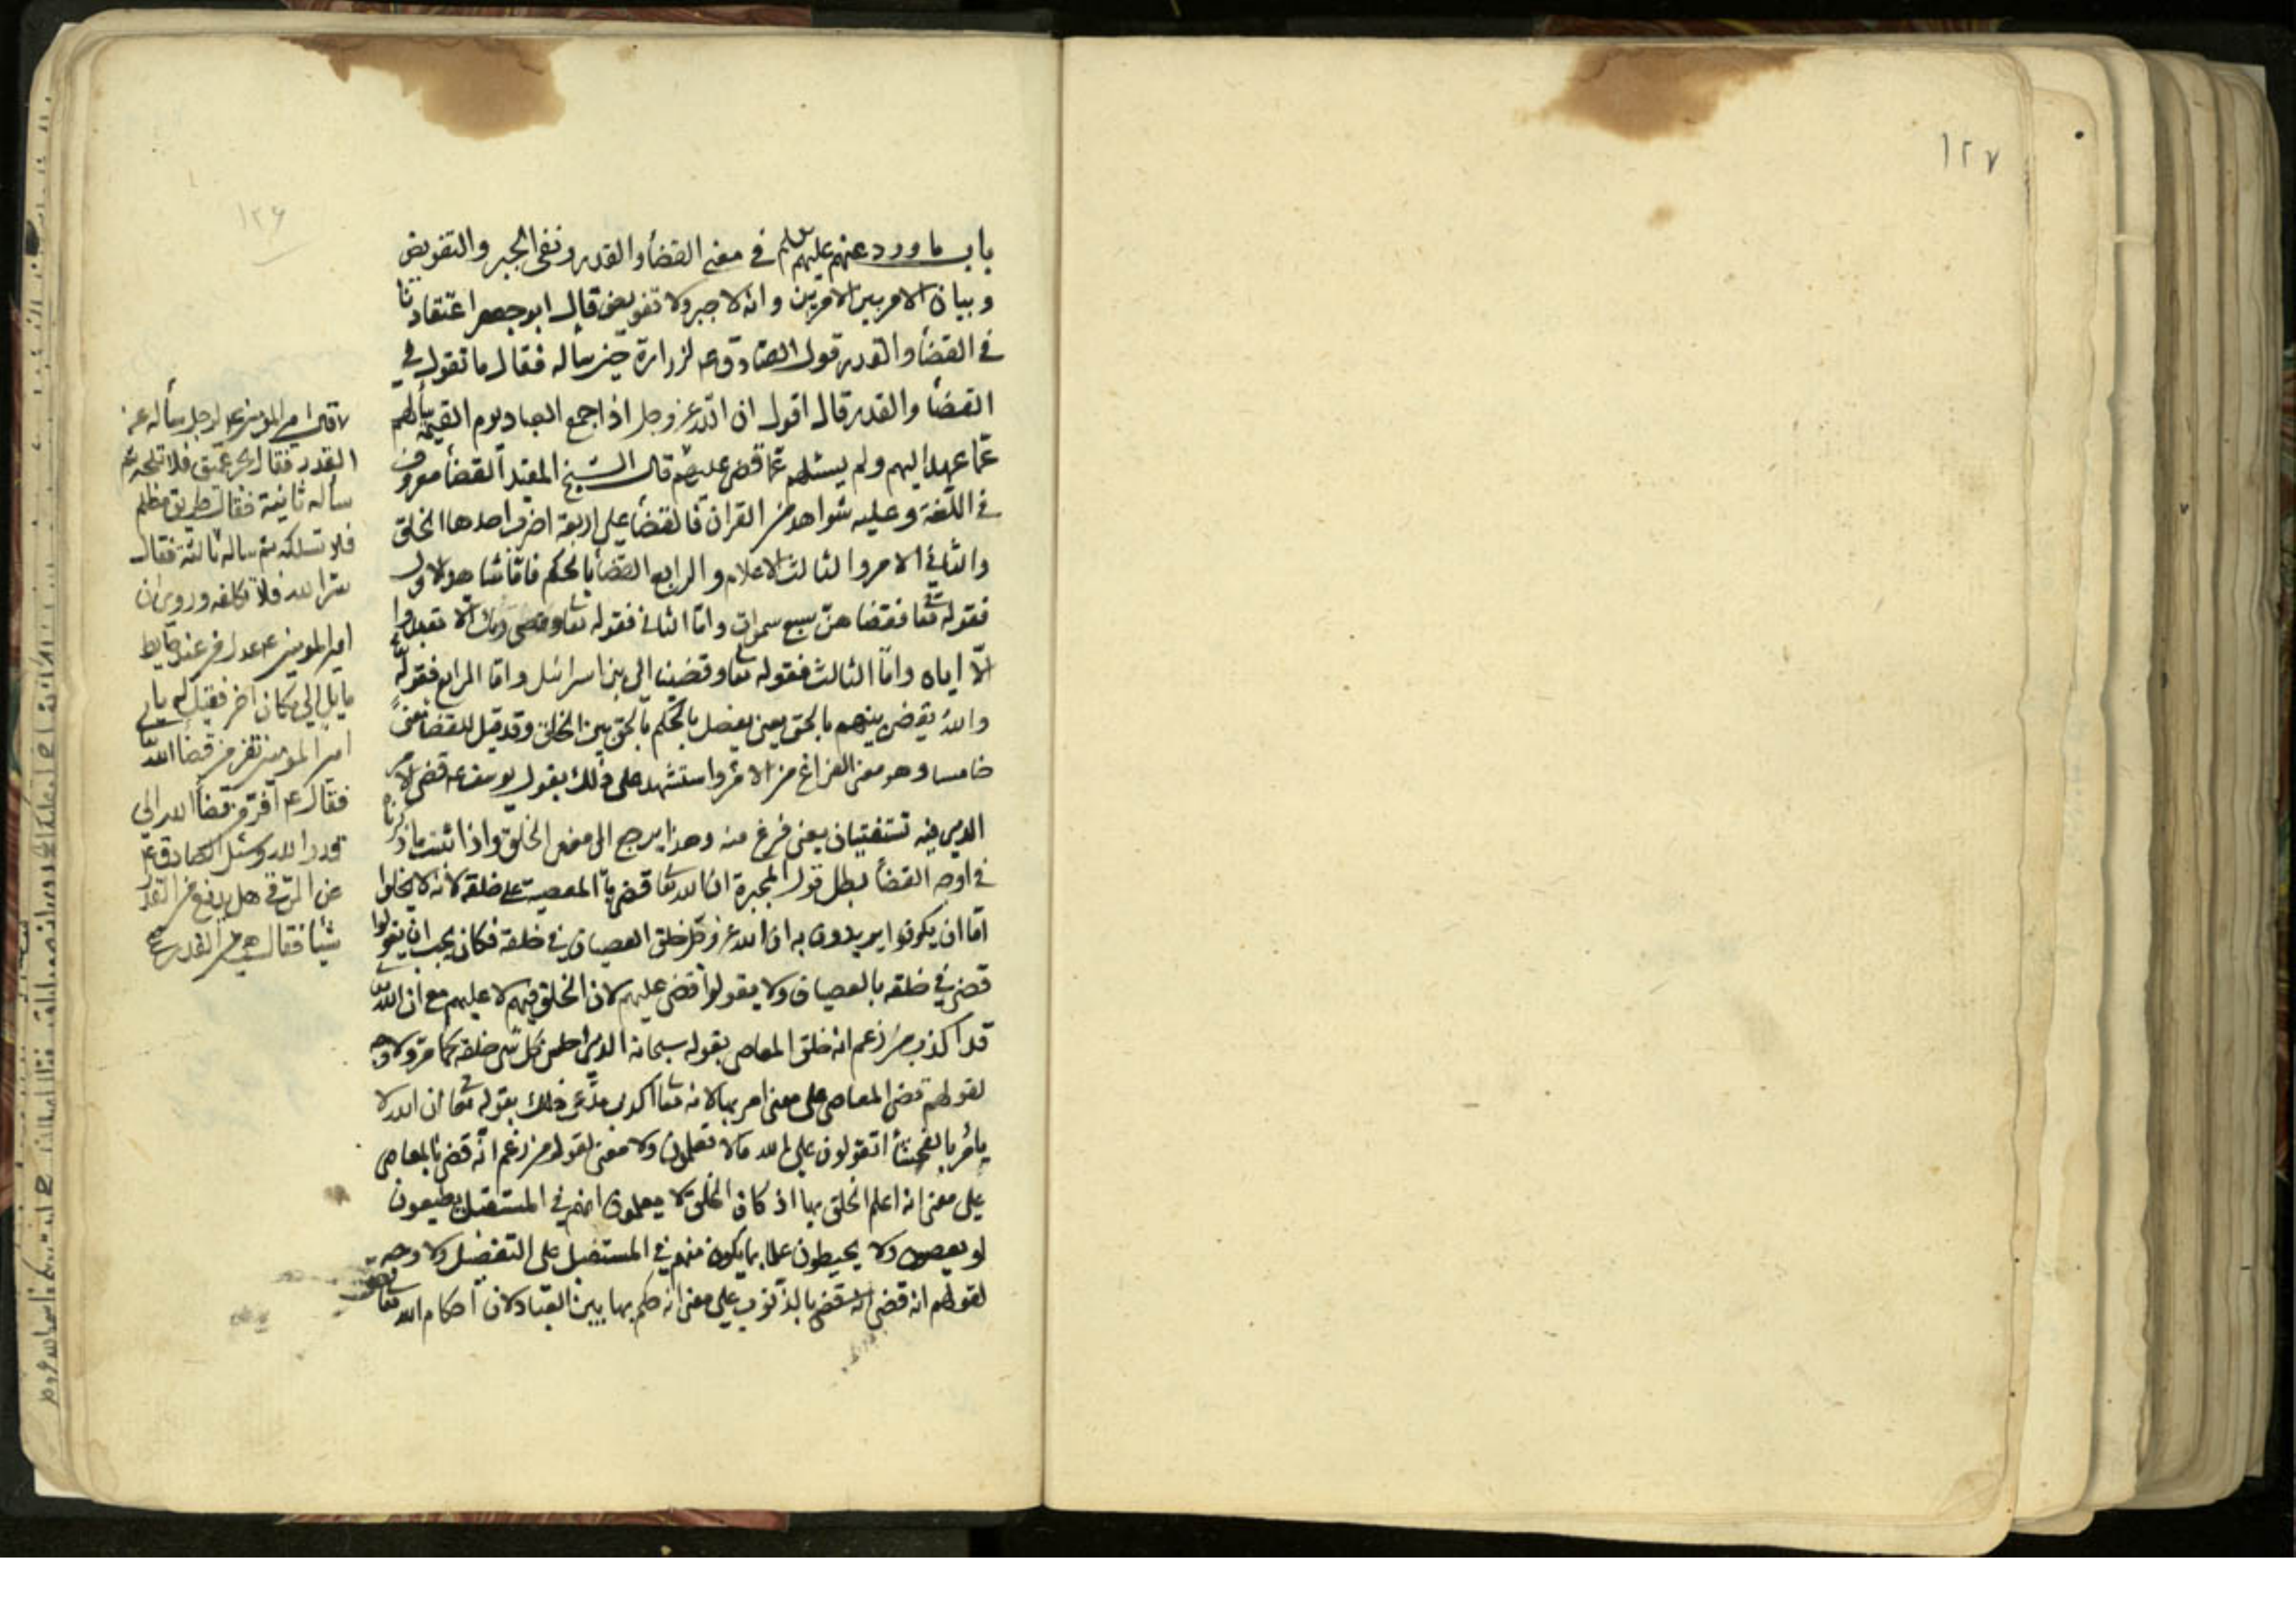 ١٢٧
١٢٦
باب ما ورد عنهم عليهم السلم في معنى القضأ والقدر ونفى الجبر والتفويض
وبيان الامر بين الامرين وانه لا جبر ولا تفويض قال ابو جعفر اعتقادنا
في القضأ والقدر قول الصادق ع لزرارة حين سأله فقال ما تقول في
القضأ والقدر قال اقول ان الله عز وجل اذا جمع العباد يوم القيمة سألهم
عمّا عهد اليهم ولم يسئلهم عمّا قضى عليهم قال الشيخ المفيد القضأ معروف
في اللّغة وعليه شواهد من القران فالقضأ على اربعة اضرب احدها الخلق
والثاني الامر والثالث الاعلام والرابع القضأ بالحكم فامّا شاهد الاول
فقوله تعا فقضاهن سبع سموات وامّا الثانى فقوله تعا وقضى ربك الّا تعبدوا
الّا اياه وامّا الثالث فقوله تعا وقضينا الى بنى اسرائيل وامّا الرابع فقوله تعا
والله يقضى بينهم بالحق يعنى يفصل بالحكم بالحق بين الخلق وقد قيل للقضأ معنىً
خامسا وهو معنى الفراغ من الامر واستشهد على ذلك بقول يوسف ع قضى الامر
الذى فيه تستفتيان يعنى فرغ منه وهذا يرجع الى معنى الخلق واذا ثبت ما ذكرنا
في اوجه القضأ بطل قول المجبرة ان الله تعا قضى بالمعصية على خلقه لانه لا يخلوا
امّا ان يكونوا يريدون به ان الله عز وجل خلق العصيان في خلقه فكان يجب ان يقولوا
قضى في خلقه بالعصيان ولا يقولوا قضى عليهم لان الخلق فيهم لا عليهم مع ان الله تعا
قد اكذب من زعم انه خلق المعاصى بقوله سبحانه الذى احسن كل شى خلقه كما مرّ ولا وجه
لقولهم قضى المعاصى على معنى امر بها لانه تعا اكذب مدّعى ذلك بقوله تعا ان الله لا
يامر بالفحشأ اتقولون على الله ما لا تعلمون ولا معنى لقول من زعم انّه قضى بالمعاصى
على معنى انه اعلم الخلق بها اذ كان الخلق لا يعلمون انهم في المستقبل يطيعون
او يعصون ولا يحيطون علما بما يكون منهم في المستقبل على التفضيل ولا وجه
لقولهم انه قضى بالذنوب على معنى انه حكم بها بين العباد لان احكام الله تعا
وقال امير المؤمنين ع لرجل سأله عن
القدر فقال بحر عميق فلا تلجه ثم
سأله ثانية فقال طريق مظلم
فلا تسلكه ثم ساله ثالثة فقال
سر الله فلا تكلفه وروى ان
امير المؤمنين ع عدل من عند حايط
مايل الى مكان اخر فقيل له يا
امير المؤمنين تفر من قضأ الله
فقال ع افرّ من قضأ الله الى
قدر الله وسئل الصادق ع
عن الرّقى هل يدفع من القدر
شيئا فقال هى من القدر